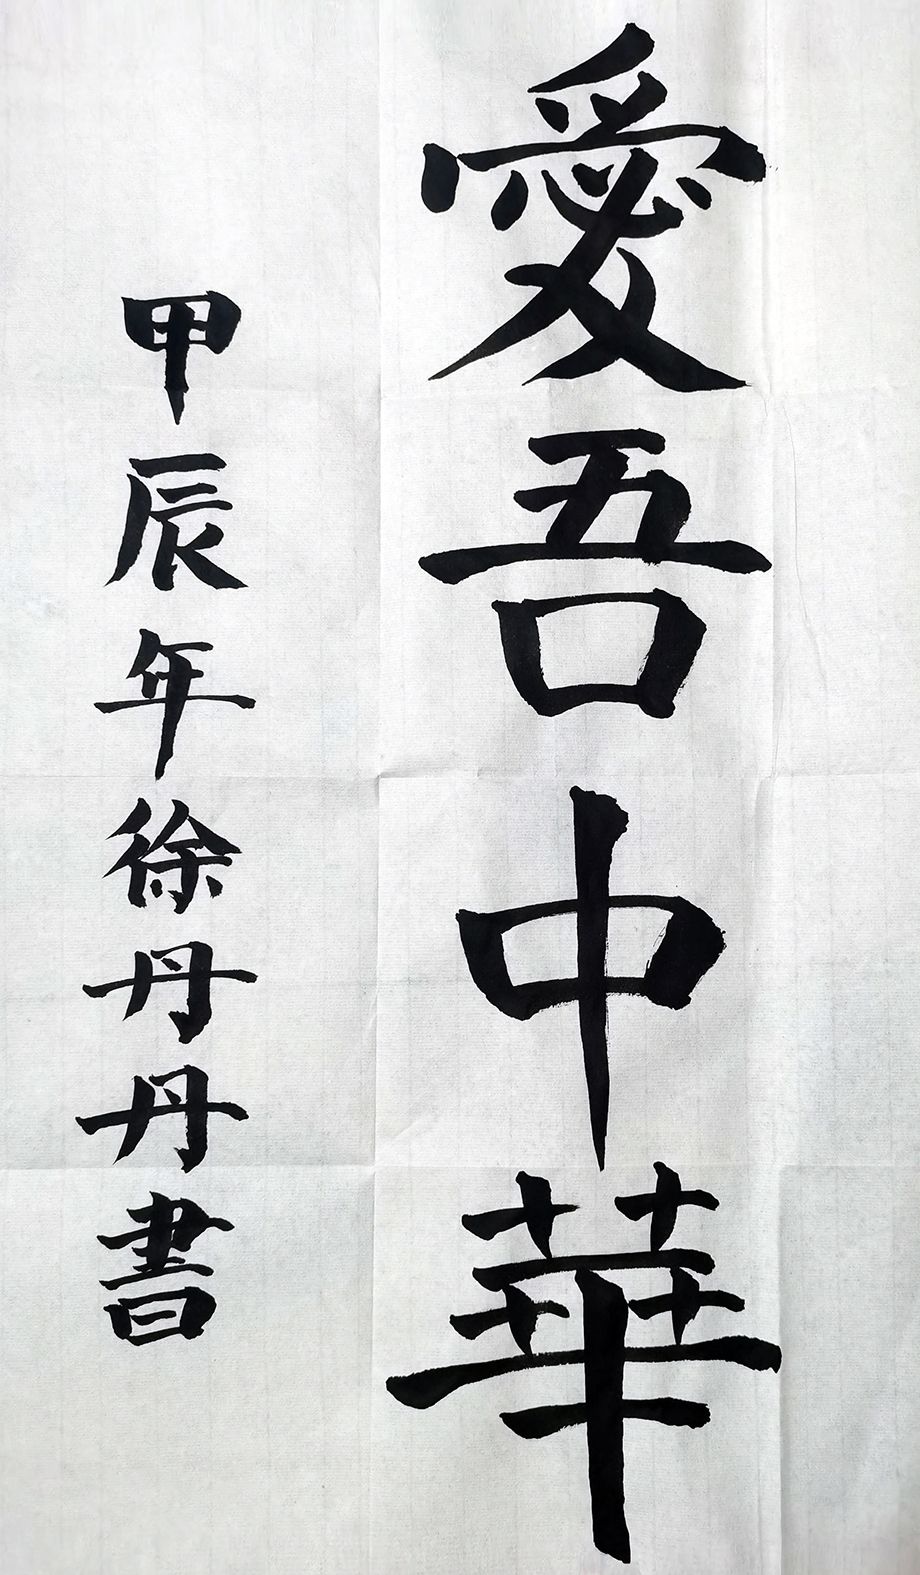 愛吾中華
甲辰年徐丹丹書